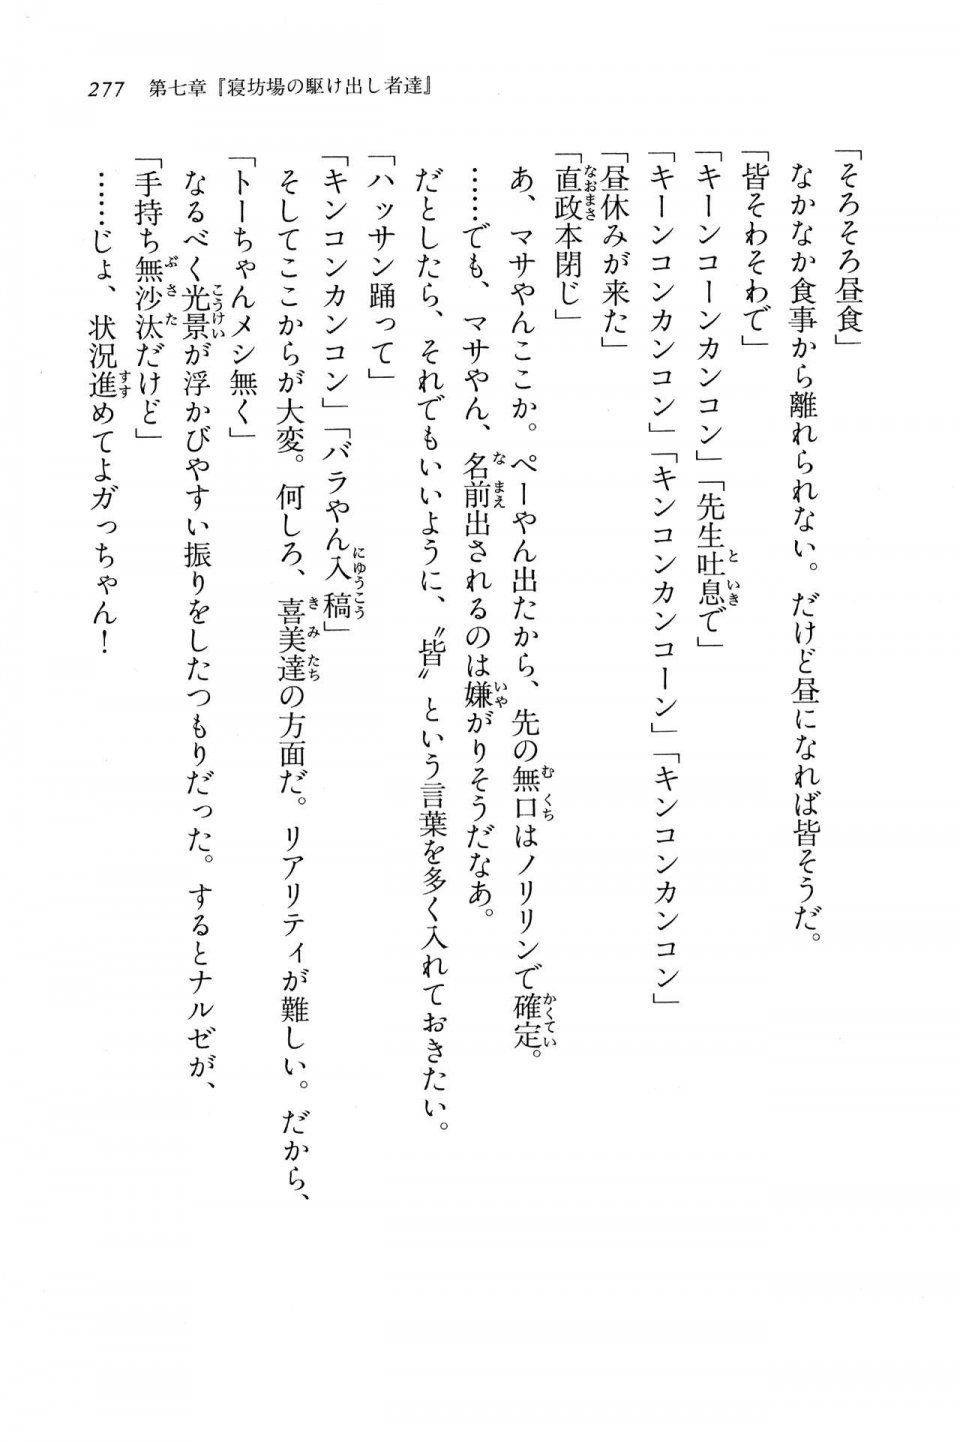 277　第七章『寝坊場の駆け出し者達』
「そろそろ昼食」
なかなか食事から離れられない。だけど昼になれば皆そうだ。
「皆そわそわで」
「キーンコーンカンコン」「先生吐息で」
「キーンコンカンコン」「キンコンカンコーン」「キンコンカンコン」
「昼休みが来た」
「直政本閉じ」
あ、マサやんここか。ペーやん出たから、先の無口はノリリンで確定。
……でも、マサやん、名前出されるのは嫌がりそうだなあ。
だとしたら、それでもいいように、〝皆〟という言葉を多く入れておきたい。
「ハッサン踊って」
「キンコンカンコン」「バラやん入稿」
そしてここからが大変。何しろ、喜美達の方面だ。リアリティが難しい。だから、
「トーちゃんメシ無く」
なるべく光景が浮かびやすい振りをしたつもりだった。するとナルゼが、
「手持ち無沙汰だけど」
……じょ、状況進めてよガっちゃん！